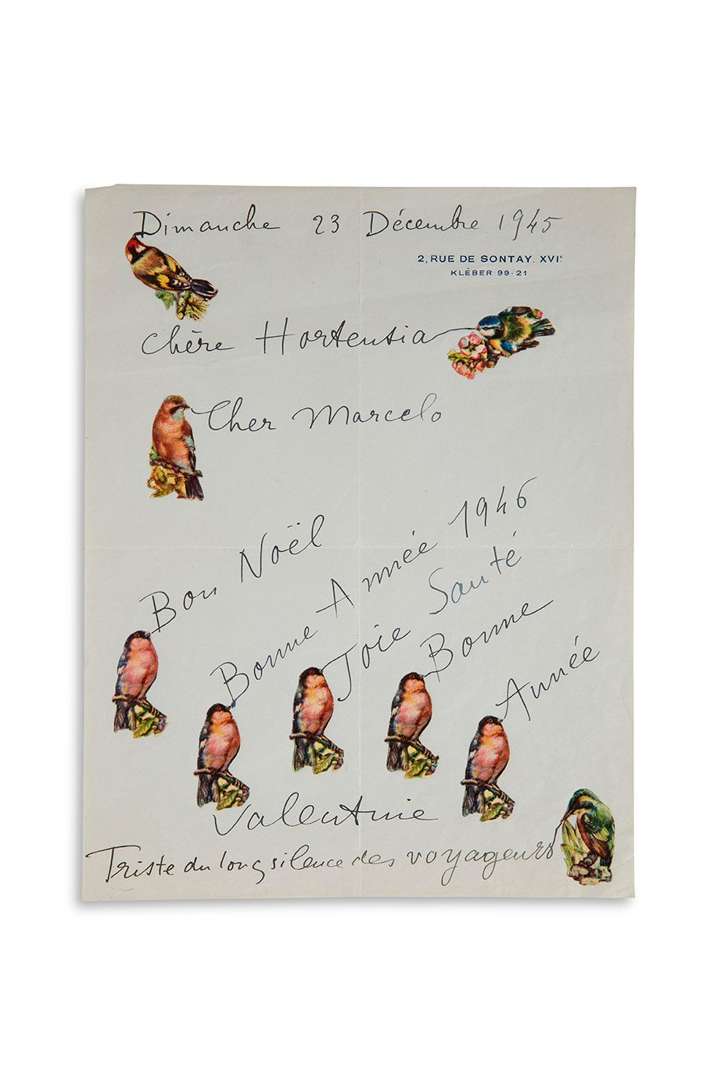 Dimanche 23 Décembre 1945
2, RUE DE SONTAY. XVIᵉ
KLÉBER 99-21
Chère Hortensia
Cher Marcelo
Bon Noël
Bonne Année 1946
Joie Santé
Bonne
Année
Valentine
Triste du long silence des voyageurs